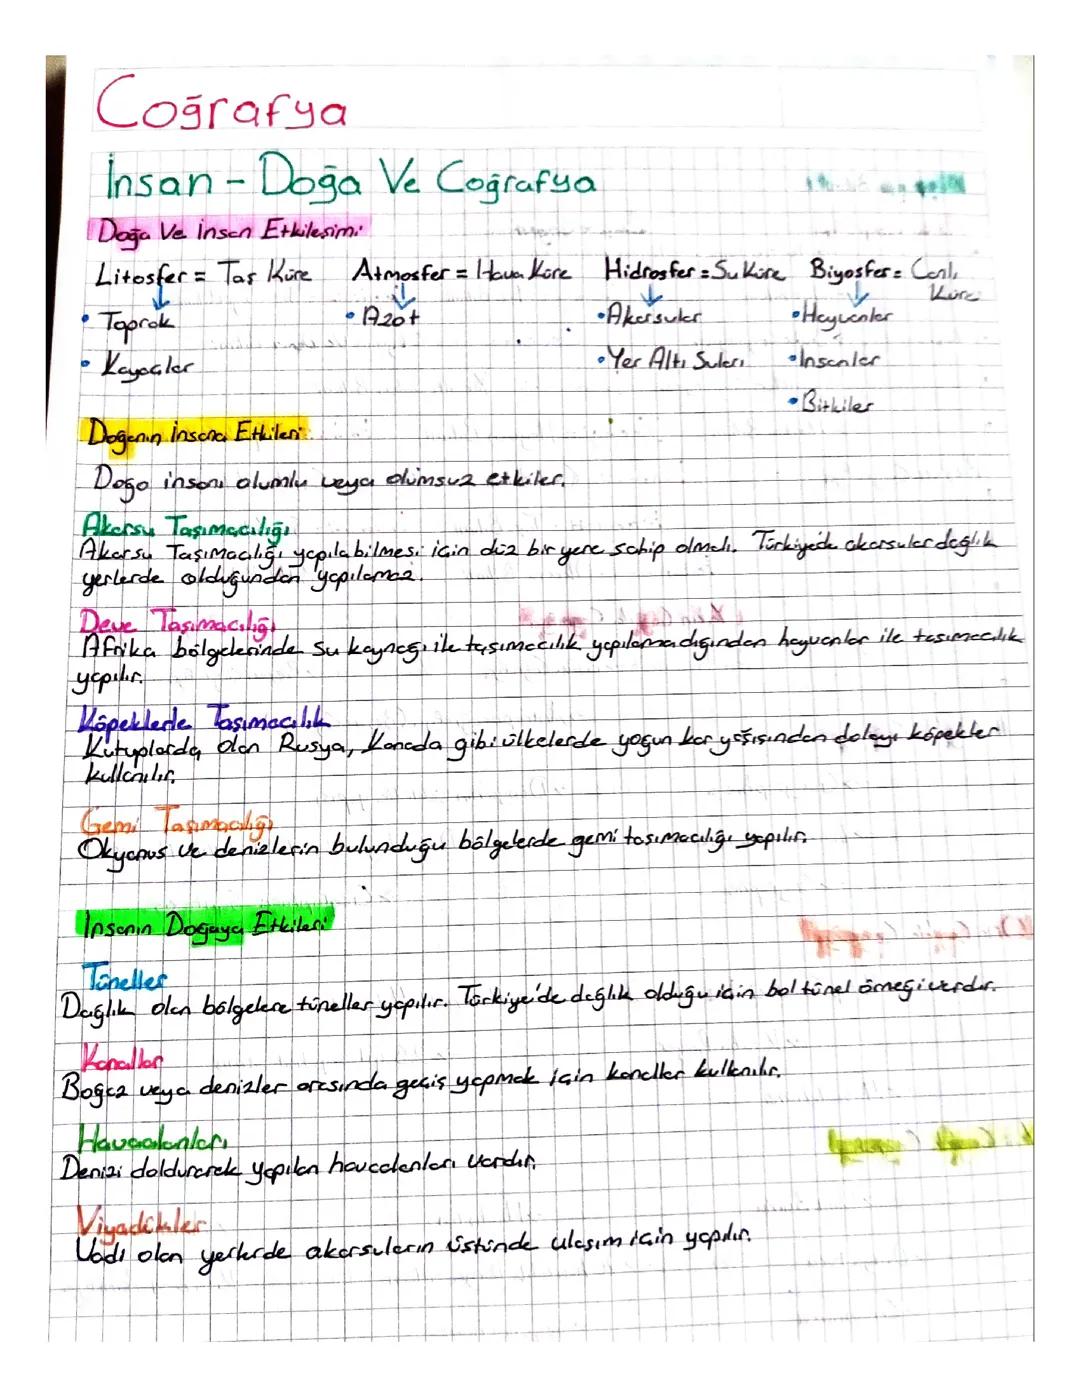 Coğrafya
İnsan - Doğa Ve Coğrafya
Doğa Ve İnsan Etkileşimi
Litosfer = Taş Küre Atmosfer = Hava Küre Hidrosfer = Su Küre Biyosfer = Canlı Küre
• Toprak • Azot • Akarsular • Hayvanlar
• Kayaçlar • Yer Altı Suları • İnsanlar
• Bitkiler
Doğanın İnsana Etkileri
Doğa insanı olumlu veya olumsuz etkiler.
Akarsu Taşımacılığı
Akarsu Taşımacılığı yapılabilmesi için düz bir yere sahip olmalı. Türkiyede akarsular dağlık
yerlerde olduğundan yapılamaz.
Deve Taşımacılığı
Afrika bölgelerinde su kaynağı ile taşımacılık yapılamadığından hayvanlar ile taşımacılık
yapılır.
Köpeklerle Taşımacılık
Kutuplarda olan Rusya, Kanada gibi ülkelerde yoğun kar yağışından dolayı köpekler
kullanılır.
Gemi Taşımacılığı
Okyanus ve denizlerin bulunduğu bölgelerde gemi taşımacılığı yapılır.
İnsanın Doğaya Etkileri
Tüneller
Dağlık olan bölgelere tüneller yapılır. Türkiye'de dağlık olduğu için bol tünel örneği vardır.
Kanallar
Boğaz veya denizler arasında geçiş yapmak için kanallar kullanılır.
Havaalanları
Denizi doldurarak yapılan havaalanları vardır.
Viyadükler
Vadi olan yerlerde akarsuların üstünde ulaşım için yapılır.